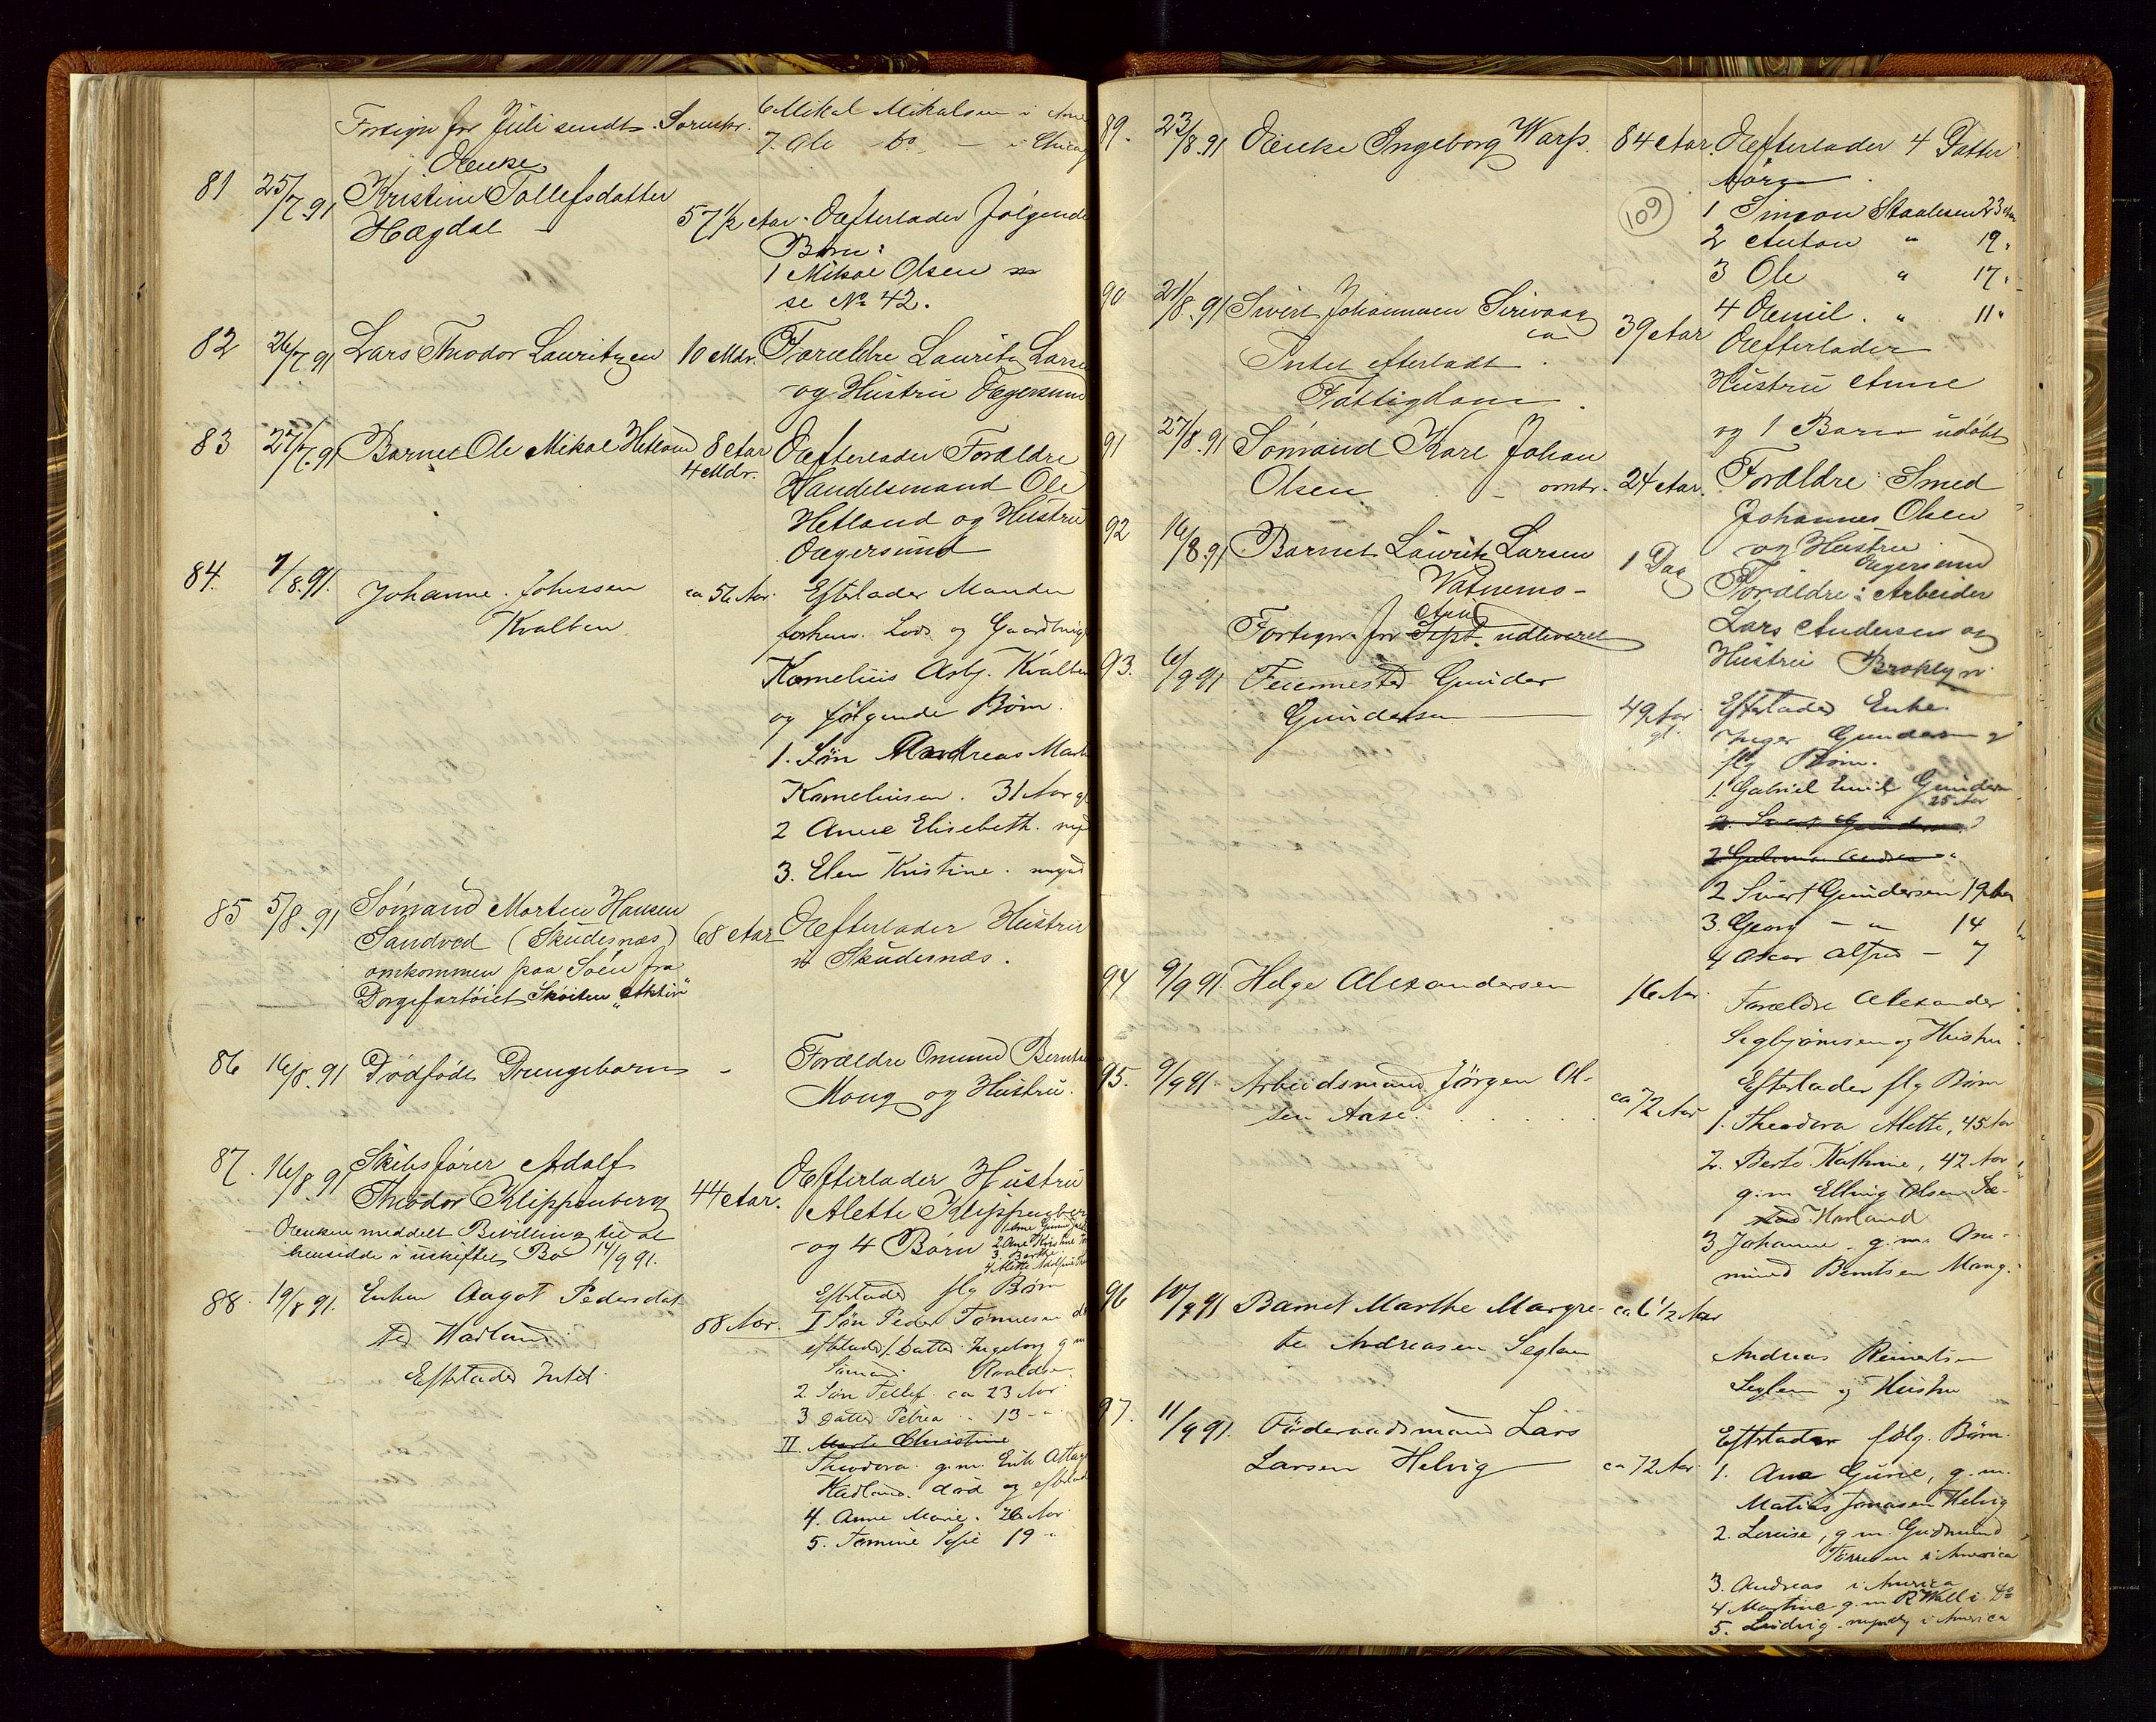 Fortegn for Juli sendt Sorenskr. 6 Mikal Mikalsen i Ame
7. Ole do — i Chicag
81 25/7.91 Enke
Kristine Tollefsdatter
Hægdal — 57 1/2 Aar. Efterlader følgende
Børn:
1 Mikal Olsen
se No 42.
82 26/7.91 Lars Theodor Lauritzen 10 Mdr. Forældre Lauritz Larse
og Hustru Egersund
83 27/7.91 Barnet Ole Mikal Hetland 8 Aar
4 Mdr. Efterlader Forældre
Handelsmand Ole
Hetland og Hustru
Egersund
84. 1/8.91. Johanne Johnssen
Kvalben ca 56 Aar. Efterlader Manden
forhen. Lods og Gaardbrug
Kornelius Asbj. Kvalbe
og følgende Børn.
1. Søn Andreas Mart
Korneliusen. 31 Aar gl
2 Anne Elisebeth. myn
3. Elen Kristine. mynd
85 5/8.91 Sømand Morten Hansen
Sandved (Skudesnæs)
omkommen paa Søen fra
Dorgefartøiet Skøiten "Aktiv" 68 Aar Efterlader Hustru
Skudesnæs.
86 16/8.91 Dødfødt Drengebarn — Forældre Omund Berntse
Mong og Hustru.
87. 16/8.91 Skibsfører Adolf
Theodor Klippenberg 44 Aar. Efterlader Hustru
Alette Klippenber
og 4 Børn
2. Ane Kirstine
3. Berthe
4 Alette Adolfine
Enken meddelt Bevilling til at
hensidde i uskiftet Bo 14/9 91.
88. 19/8 91. Enken Aagot Pedersdat-
ter Hadland 88 Aar.
Efterlader Intet.
Efterlader flg Børn
I Søn Peder Tønnesen d
efterlader 1. Datter Ingeborg g m
Sømand Roaldsen
2. Søn Tollef. ca 23 Aar
3 Datter Petrea " 13 - "
II. Marte Christine
Theodora. g.m. Erik Attag
Hadland. død og efterlad
4. Anne Marie. 26 Aar
5. Tomine Sofie 19 "
89. 23/8.91 Enke Ingeborg Warp. 84 Aar. Efterlader 4 Datter
børn
109
1 Simon Staalesen 23 Aar
2 Anton " 19 "
3 Ole " 17 "
4 Emil. " 11 "
90 21/8.91 Sivert Johannesen Sirevaag
ca 39 Aar Efterlader
Intet efterladt.
Fattigdom.
Hustru Anne
og 1 Barn udøbt
91 27/8.91 Sømand Karl Johan
Olsen — omtr. 24 Aar. Forældre: Smed
Johannes Olsen
og Hustru
Egersund
92 16/8.91 Barnet Lauritz Larsen
Vatnemo- 1 Dag Forældre: Arbeider
Lars Andersen og
Hustru Broklyn
Fortegn. for Sept. udleveret
Aug
93. 6/9 91 Feiermester Gunder
Gundersen 49 Aar
gl. Efterlader Enke
Inger Gundersen og
flg Børn.
1. Gabriel Emil Gundersen
25 Aar
2 Sivert Gundersen 19 Aar
3. Georg - " 14
4 Oskar Alfred - 7
94 9/9 91. Helge Alexandersen 16 Aar. Forældre Alexander
Sigbjørnsen og Hustru
95. 9/9 91. Arbeidsmand Jørgen Ol-
sen Aase. ca 72 Aar Efterlader flg Børn
1. Theodora Alette, 45 Aar
2. Berte Kathrine, 42 Aar
g.m Elling Olsen Sæ-
Havland
3 Johanne. g.m. Om-
mund Berntsen Mong.
96 10/9 91 Barnet Marthe Margre-
te Andreasen Seglem ca 6 1/2 Aar
Andreas Reinertsen
Seglem og Hustru
97. 11/9 91. Føderaadsmand Lars
Larsen Helvig ca 72 Aar. Efterlader følg. Børn.
1. Ane Gurie, g.m.
Matias Jonasen Helvig
2. Lovise, g m. Gudmund
Tørresen i America
3. Andreas i America
4 Martine g.m R Wall i Do
5. Ludvig. myndig i America